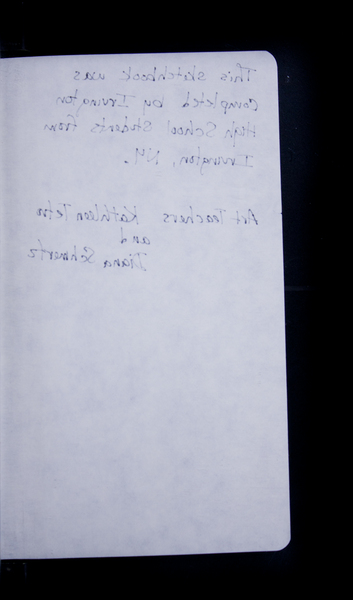 This sketchbook was
completed by Irvington
High School Students from
Irvington, NY.
Art Teachers Kathleen
and
Diana Schmertz